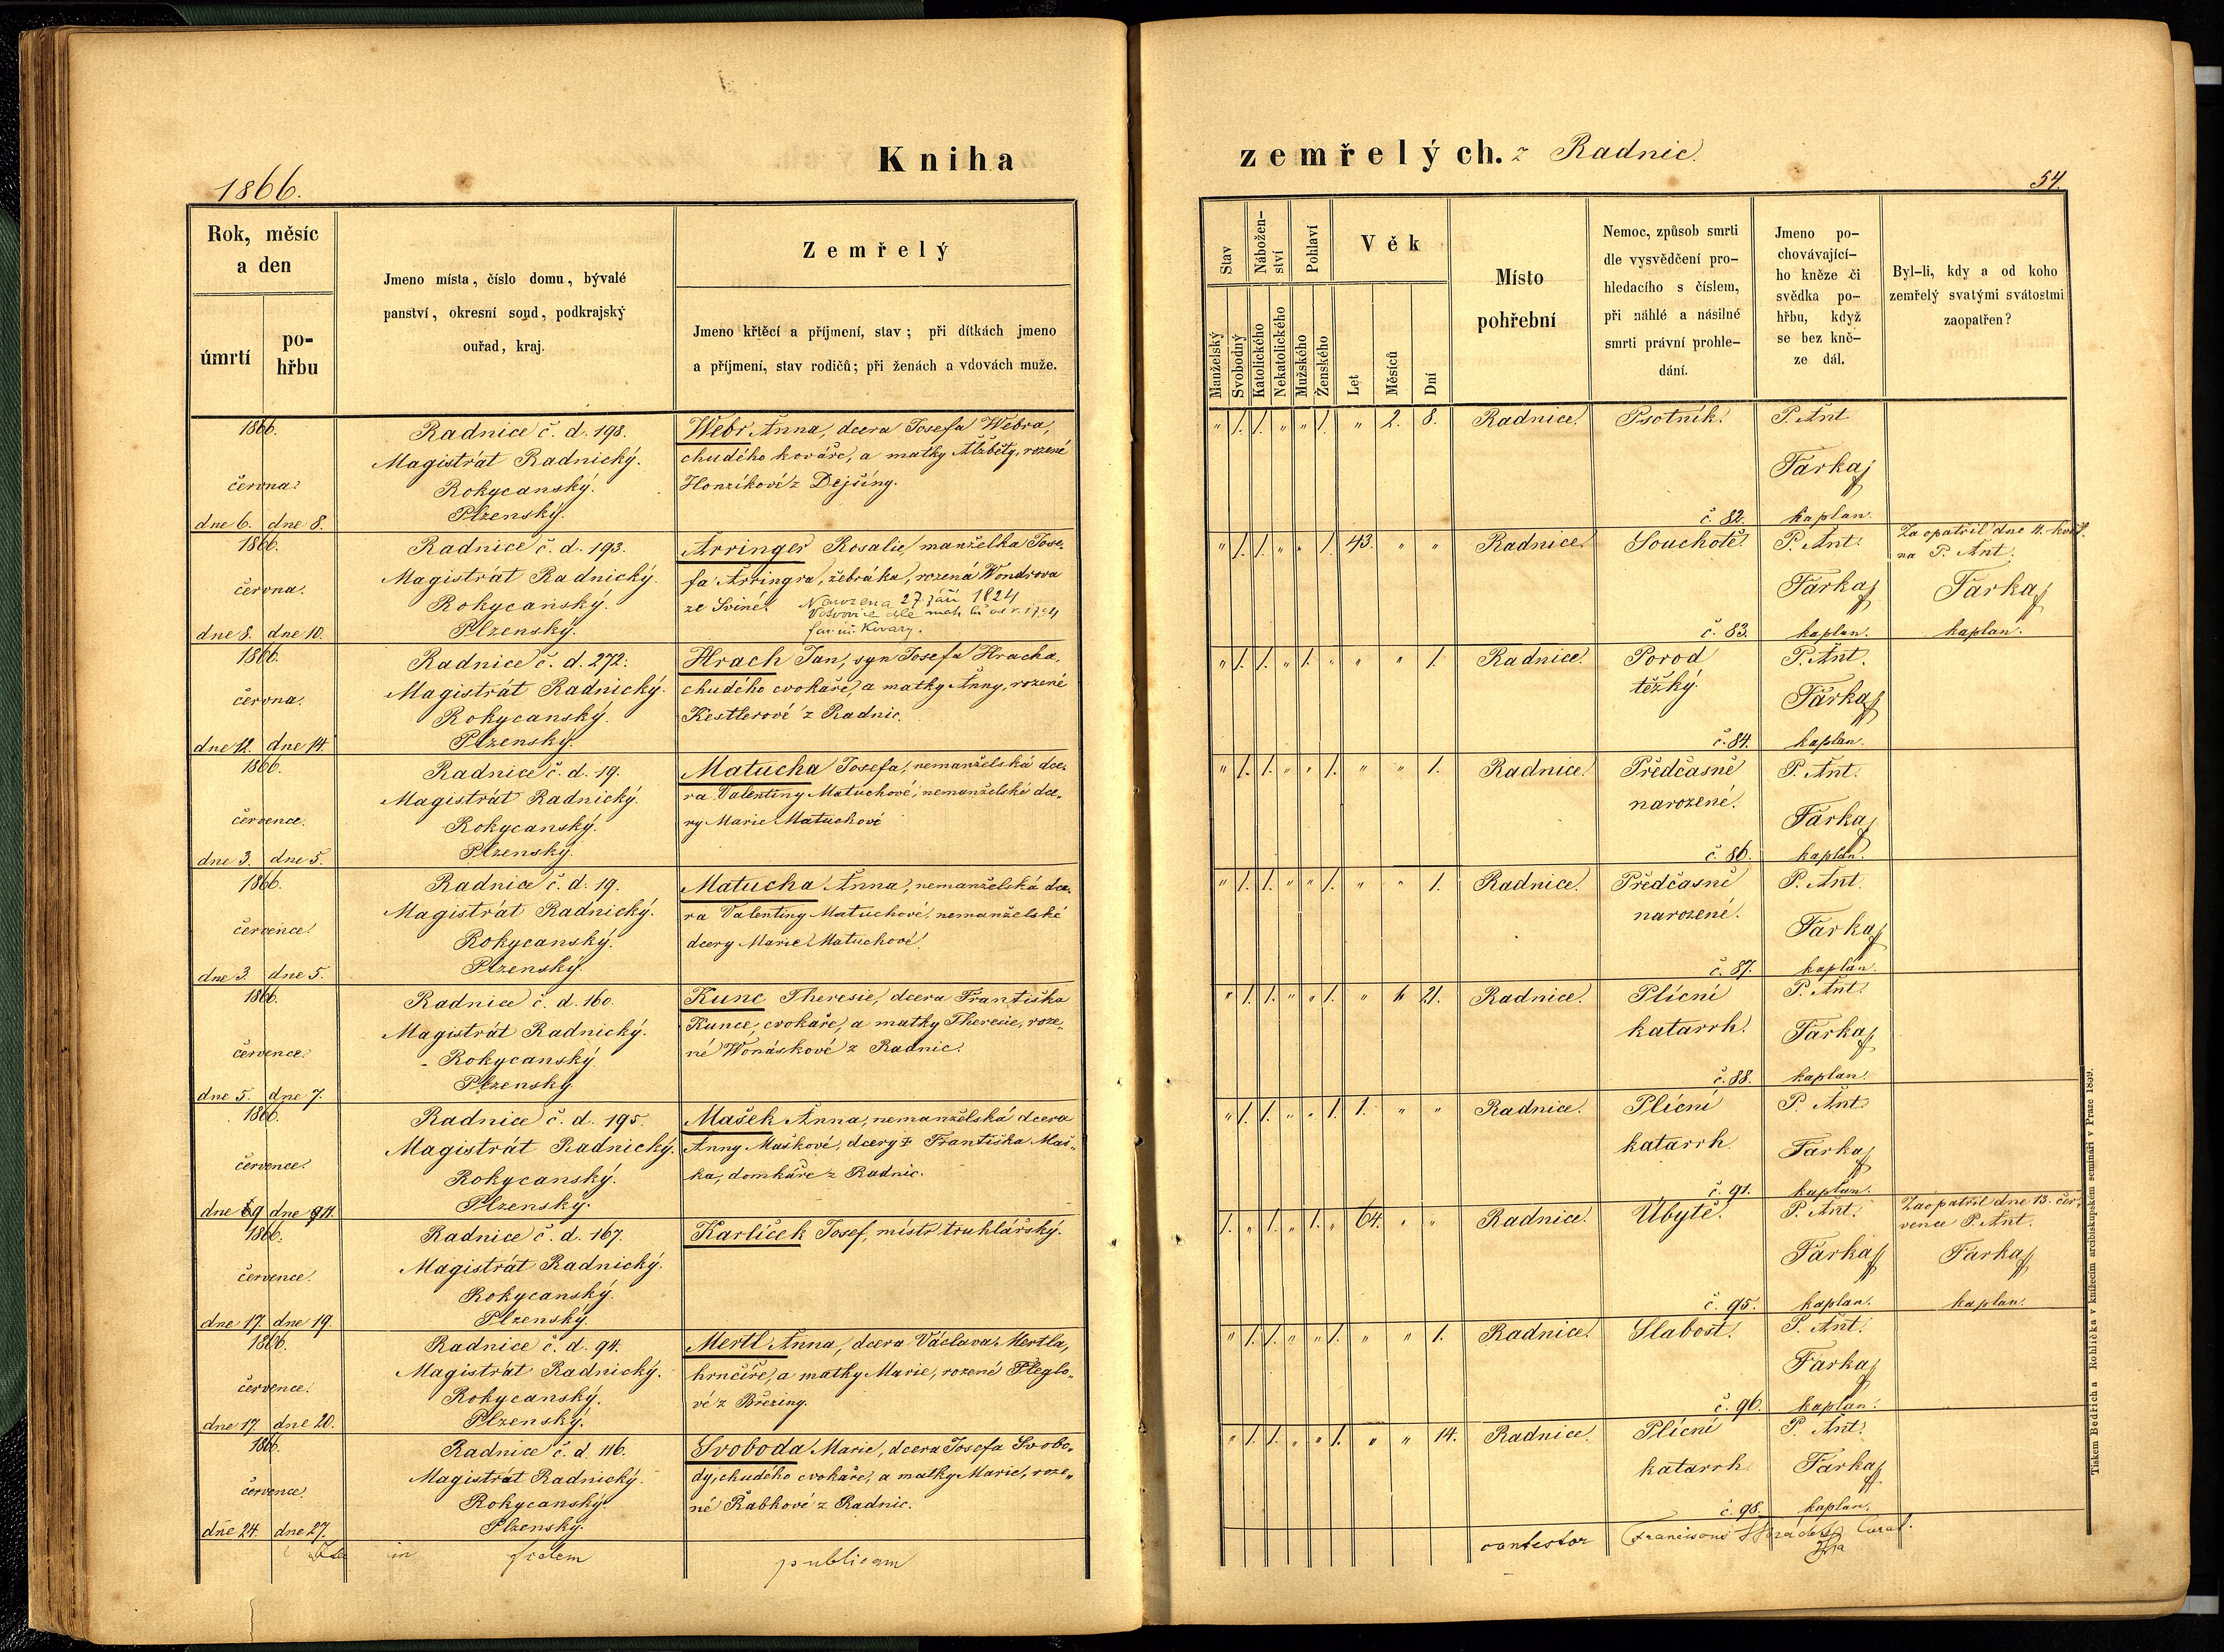 Kniha
zemřelých. z Radnic.
1866.
54.
Rok, měsíc
a den
úmrtí
po-
hřbu
Jmeno místa, číslo domu, bývalé
panství, okresní soud, podkrajský
ouřad, kraj.
Zemřelý
Jmeno křtěcí a příjmení, stav; při dítkách jmeno
a příjmení, stav rodičů; při ženách a vdovách muže.
Stav
Nábožen-
ství
Pohlaví
Věk
Manželský
Svobodný
Katolického
Nekatolického
Mužského
Ženského
Let
Měsíců
Dní
Místo
pohřební
Nemoc, způsob smrti
dle vysvědčení pro-
hledacího s číslem,
při náhlé a násilné
smrti právní prohle-
dání.
Jmeno po-
chovávající-
ho kněze či
svědka po-
hřbu, když
se bez kně-
ze dál.
Byl-li, kdy a od koho
zemřelý svatými svátostmi
zaopatřen?
1866.
června.
dne 6. dne 8.
Radnice č. d. 198.
Magistrát Radnický.
Rokycanský.
Plzenský.
Webr Anna, dcera Josefa Webra,
chudého kováře, a matky Alžběty, rozené
Honzíkové z Dejšíny.
" 1. 1. " " 1. " 2. 8. Radnice. Psotník. P. Ant.
Farkač
č. 82. kaplan.
1866.
června.
dne 8. dne 10.
Radnice č. d. 193.
Magistrát Radnický.
Rokycanský.
Plzenský.
Arringer Rosalie, manželka Jose-
fa Arringra, žebráka, rozená Wondrova
ze Sviné. Narozena 27 září 1824
" 1. 1. " " 1. 43. " " Radnice. Souchotě. P. Ant. Zaopatřil dne 4. květ.
na P. Ant.
Farkač Farkač
č. 83. kaplan. kaplan.
1866.
června.
dne 12. dne 14.
Radnice č. d. 272.
Magistrát Radnický.
Rokycanský.
Plzenský.
Hrach Jan, syn Josefa Hracha,
chudého cvokaře, a matky Anny, rozené
Kestlerové z Radnic.
" 1. 1. " 1. " " " 1. Radnice. Porod P. Ant.
těžký. Farkač
č. 84. kaplan.
1866.
července.
dne 3. dne 5.
Radnice č. d. 19.
Magistrát Radnický.
Rokycanský.
Plzenský.
Matucha Josefa, nemanželská dce-
ra Valentiny Matuchové, nemanželské dce-
ry Marie Matuchové
" 1. 1. " " 1. " " 1. Radnice. Předčasně P. Ant.
narozené. Farkač
č. 86. kaplan.
1866.
července.
dne 3. dne 5.
Radnice č. d. 19.
Magistrát Radnický.
Rokycanský.
Plzenský.
Matucha Anna, nemanželská dce-
ra Valentiny Matuchové, nemanželské
dcery Marie Matuchové.
" 1. 1. " " 1. " " 1. Radnice. Předčasně P. Ant.
narozené. Farkač
č. 87. kaplan.
1866.
července.
dne 5. dne 7.
Radnice č. d. 160.
Magistrát Radnický.
Rokycanský.
Plzenský.
Kunc Theresie, dcera Františka
Kunce, cvokaře, a matky Theresie, roze-
né Wonáskové z Radnic.
" 1. 1. " " 1. " 21. Radnice. Plícní P. Ant.
katarrh. Farkač
č. 88. kaplan.
1866.
července.
dne 9 dne 11.
Radnice č. d. 195.
Magistrát Radnický.
Rokycanský.
Plzenský.
Mašek Anna, nemanželská dcera
Anny Maškové, dcery Františka Maš-
ka, domkáře z Radnic.
" 1. 1. " " 1. 1. " " Radnice. Plícní P. Ant.
katarrh. Farkač
č. 91. kaplan.
1866.
července.
dne 17. dne 19
Radnice č. d. 167.
Magistrát Radnický.
Rokycanský.
Plzenský.
Karlíček Josef, mistr truhlářský.
1. " 1. " 1. " 64. " " Radnice. Úbytě. P. Ant. Zaopatřil dne 13. čer-
vence P. Ant.
Farkač Farkač
č. 95. kaplan. kaplan.
1866.
července.
dne 17. dne 20.
Radnice č. d. 94.
Magistrát Radnický.
Rokycanský.
Plzenský.
Mertl Anna, dcera Václava Mertla,
hrnčíře, a matky Marie, rozené Fleglo-
vé z Březiny.
" 1. 1. " " 1. " " 1. Radnice. Slabost. P. Ant.
Farkač
č. 96. kaplan.
1866.
července.
dne 24. dne 27.
Radnice č. d. 116.
Magistrát Radnický.
Rokycanský.
Plzenský.
Svoboda Marie, dcera Josefa Svobo-
dy, chudého cvokaře, a matky Marie, roze-
né Řabkové z Radnic.
" 1. 1. " " 1. " " 14. Radnice. Plícní P. Ant.
katarrh. Farkač
č. 98. kaplan.
in fidem publicam
contestor Franciscus
Tiskem Bedřicha Rohlíčka v knížecím arcibiskupském semináři v Praze 1859.